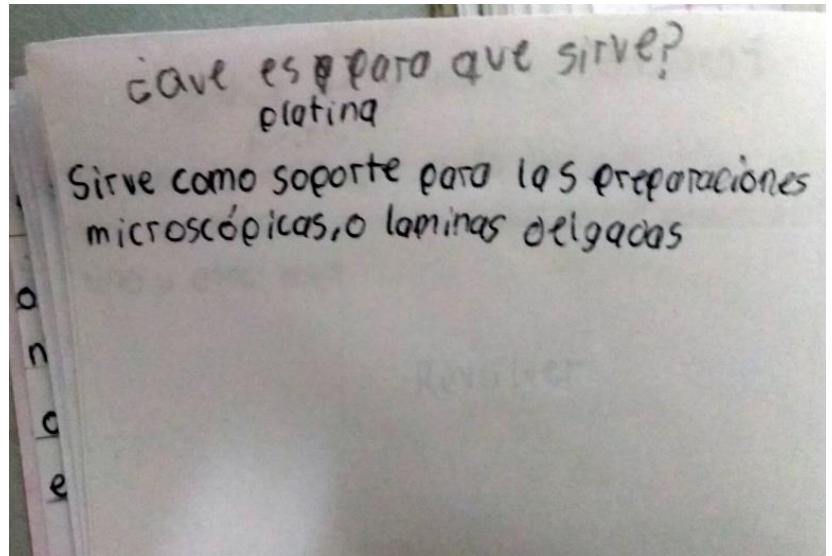 ¿Que es para que sirve?
platina
Sirve como soporte para las preparaciones
microscópicas, o laminas delgadas
o
n
d
e
Revolver